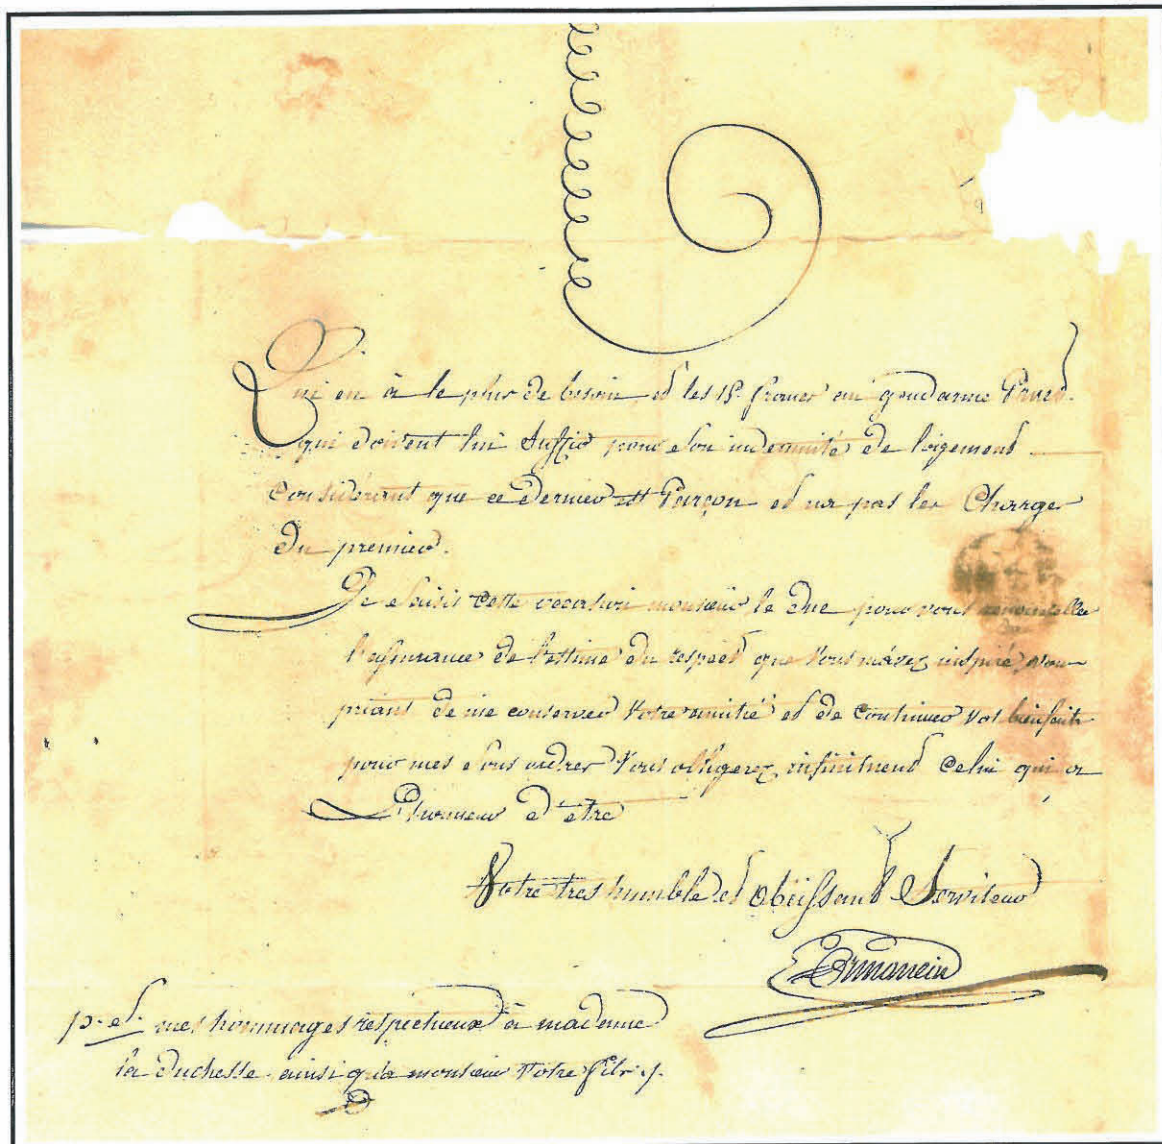 Qui en à le plus de besoin et les 15 francs au gendarme
qui doivent lui Suffir pour son indemnité de logement
Considérant que ce Dernier est Garçon et na pas les Charges
Du premier.
Je Saisis Cette occasion monsieur le Duc pour vous renouveller
l'assurance de l'estime du respect que Vous mavez inspiré, vous
priant de me conserver Votre amitié et de Continuer vos bienfaits
pour mes Sous ordres Vous obligerez infiniment Celui qui a
L'honneur d'etre
Votre tres humble et Obéissant Serviteur
p. s. mes hommages respectueux à madame
la Duchesse ainsi qua monsieur Votre fils